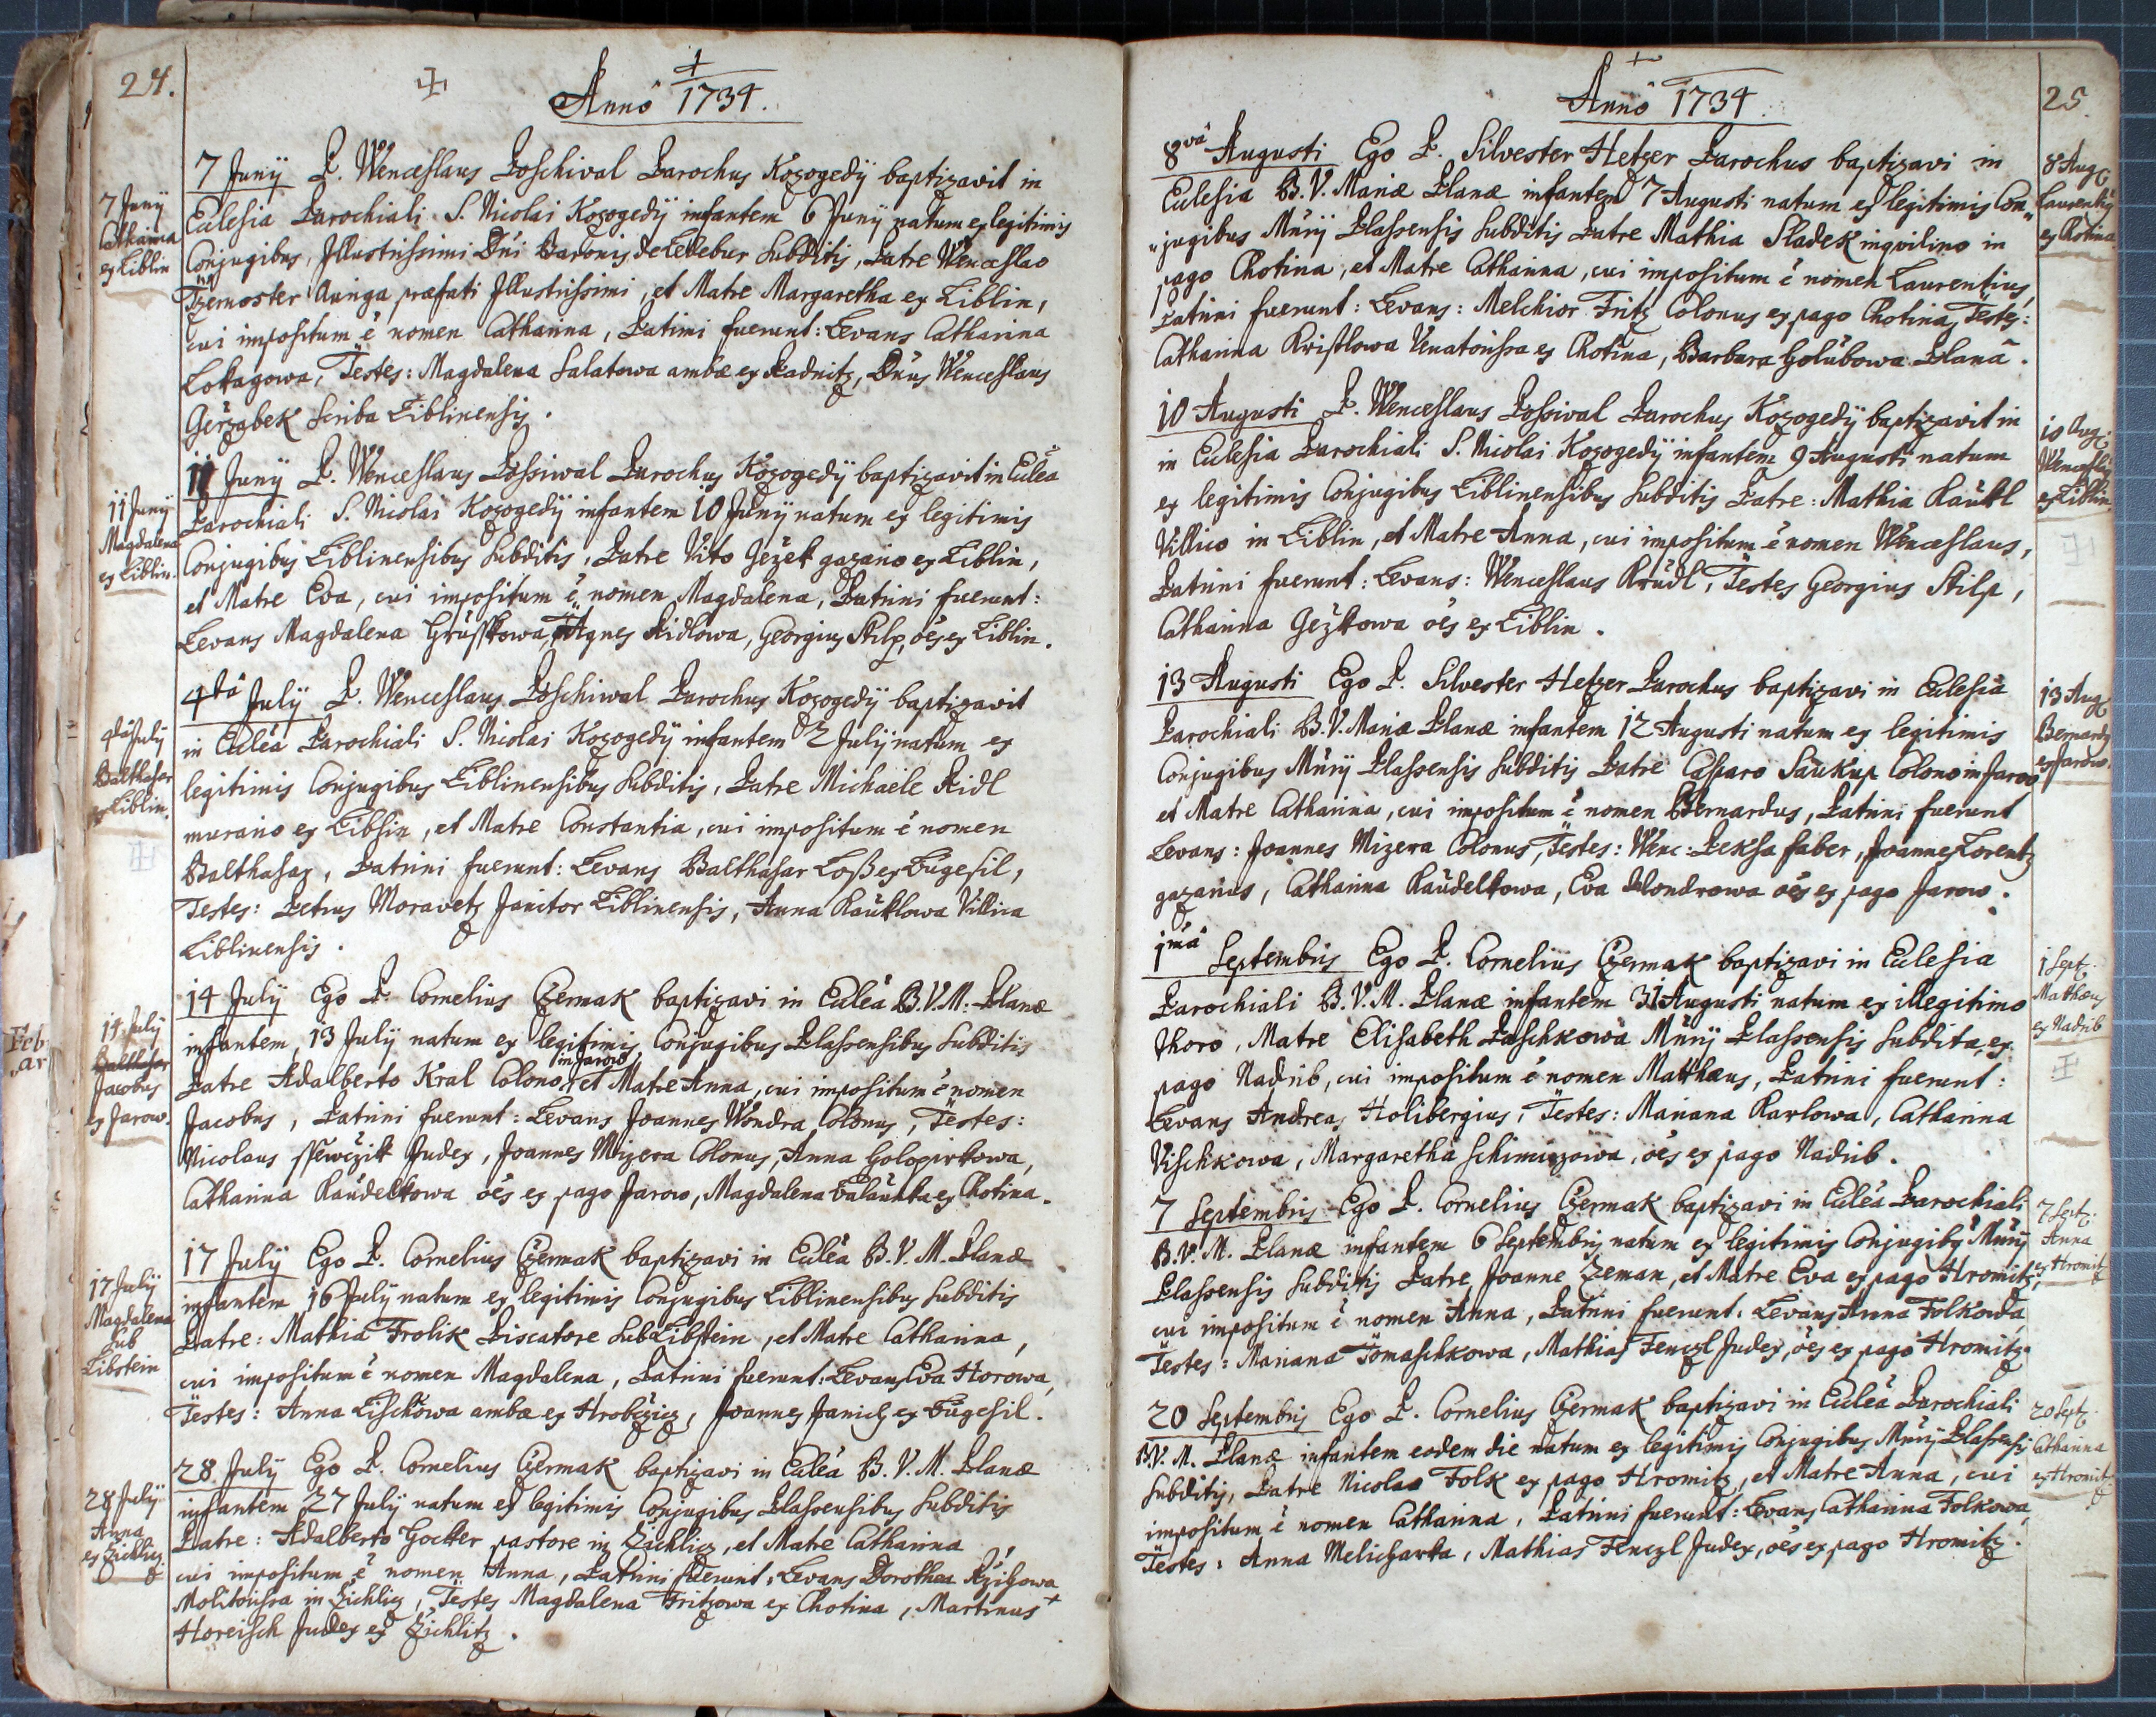 24.
Annô 1734.
7 Junÿ
Catharina
ex Liblin
7 Junÿ P. Wenceslaus Poschival Parochus Kozogedÿ baptizavit in
Ecclesia Parochiali S. Nicolai Kozogedÿ infantem 6 Junÿ natum ex legitimis
Conjugibus, Illustrissimi Dni Baronis de Ledebur subditis, Patre Wenceslao
Auriga præfati Illustrissimi, et Matre Margaretha ex Liblin,
cui impositum ê nomen Catharina, Patrini fuerunt: Levans Catharina
Lokagowa, Testes: Magdalena Salatowa ambæ ex Radnitz, Dnus Wenceslaus
Gerzabek scriba Liblinensis.
11 Junÿ
Magdalena
ex Liblin.
11 Junÿ P. Wenceslaus Possiwal Parochus Kozogedÿ baptizavit in Eccleâ
Parochiali S. Nicolai Kozogedÿ infantem 10 Junÿ natum ex legitimis
Conjugibus Liblinensibus subditis, Patre Vito Gezek gazario ex Liblin,
et Matre Eva, cui impositum ê nomen Magdalena, Patrini fuerunt:
Levans Magdalena Agnes Ridlowa, Georgius Stilp, oês ex Liblin.
4ta July
Balthasar
ex Liblin.
4tâ July P. Wenceslaus Poschiwal Parochus Kozogedÿ baptizavit
in Eccleâ Parochiali S. Nicolai Kozogedÿ infantem 2 Julÿ natum ex
legitimis Conjugibus Liblinensibus subditis, Patre Michaële Ridl
murario ex Liblin, et Matre Constantia, cui impositum ê nomen
Balthasar, Patrini fuerunt: Levans Balthasar Loß ex Bugesil,
Testes: Petrus Moravetz Janitor Liblinensis, Anna Kauklowa Villica
Liblinensis.
14 July
Jacobus
ex Jarow.
14 July Ego P. Cornelius Czermak baptizavi in Eccleâ B.V.M. Planæ
infantem, 13 July natum ex legitimis Conjugibus Plassensibus subditis
Patre Adalberto Kral Colono in Jarow, et Matre Anna, cui impositum ê nomen
Jacobus, Patrini fuerunt: Levans Joannes Wondra Colonus, Testes:
Nicolaus Judex, Joannes Mizera Colonus, Anna Golopirkowa,
Catharina Raudelkowa oês ex pago Jarow, Magdalena ex Chotina.
17 Julÿ
Magdalena
sub
Libstein
17 July Ego P. Cornelius Czermak baptizavi in Eccleâ B.V.M. Planæ
infantem 16 July natum ex legitimis Conjugibus Liblinensibus subditis
Patre: Mathia Frolik Piscatore sub Libstein, et Matre Catharina,
cui impositum ê nomen Magdalena, Patrini fuerunt: Levans Eva Horowa,
Testes: Anna Lischkowa ambæ ex Hrobczicz, Joannes Janich ex Bugesil.
28 Julÿ
Anna
ex Zichlicz
28 July Ego P. Cornelius Czermak baptizavi in Eccleâ B.V.M. Planæ
infantem 27 July natum ex legitimis Conjugibus Plassensibus subditis
Patre: Adalberto Gocker pastore in Zichlicz, et Matre Catharina
cui impositum ê nomen Anna, Patrini fuerunt: Levans Dorothea
Molitorissa in Zichlicz, Testes Magdalena Fritzowa ex Chotina, Martinus
Horeisch Judex ex Zichlitz.
25.
Annô 1734.
8vâ Augusti Ego P. Silvester Hetzer Parochus baptizavi in
Ecclesia B.V. Mariæ Planæ infantem 7 Augusti natum ex legitimis Con„
„jugibus Mûrÿ Plassensis subditis Patre Mathia Sladek inqvilino in
pago Chotina, et Matre Catharina, cui impositum ê nomen Laurentius,
Patrini fuerunt: Levans: Melchior Fritz Colonus ex pago Chotina, Testes:
Catharina Kristlowa Venatorissa ex Chotina, Barbara Golubowa Planâ.
8 Aug
Laurentius
ex Chotina.
10 Augusti P. Wenceslaus Possival Parochus Kozogedÿ baptizavit in
in Ecclesia Parochiali S. Nicolai Kozogedÿ infantem 9 Augusti natum
ex legitimis Conjugibus Liblinensibus subditis Patre: Mathia Kaukl
Villico in Liblin, et Matre Anna, cui impositum ê nomen Wenceslaus,
Patrini fuerunt: Levans: Wenceslaus Krudl, Testes Georgius Stilp,
Catharina Gezkowa oês ex Liblin.
10 Aug:
Wenceslaus
ex Liblin
13 Augusti Ego P. Silvester Hetzer Parochus baptizavi in Ecclesia
Parochiali B.V. Mariæ Planæ infantem 12 Augusti natum ex legitimis
Conjugibus Mûrÿ Plassensis subditis Patre Casparo Saukup Colono in Jarow
et Matre Catharina, cui impositum ê nomen Bernardus, Patrini fuerunt
Levans: Joannes Mizera Colonus, Testes: Wenc: Peksa faber, Joannes Lorentz
gazarius, Catharina Raudelkowa, Eva Wondrowa oês ex pago Jarow.
13 Aug
Bernardus
ex Jarow.
1mâ Septembris Ego P. Cornelius Czermak baptizavi in Ecclesia
Parochiali B.V.M. Planæ infantem 31 Augusti natum ex illegitimo
thoro, Matre Elisabeth Paschkowa Mûrÿ Plassensis subdita, ex
pago Nadrib, cui impositum ê nomen Matthæus, Patrini fuerunt:
Levans Andreas Holibergius, Testes: Mariana Karlowa, Catharina
Vischkowa, Margaretha oês ex pago Nadrib.
1 Sept.
Mathæus
ex Nadrib
7 Septembris Ego P. Cornelius Czermak baptizavi in Eccleâ Parochiali
B.V.M. Planæ infantem 6 Septembris natum ex legitimis Conjugibus Mûrÿ
Plassensis subditis Patre Joanne Zeman, et Matre Eva ex pago Hromitz,
cui impositum ê nomen Anna, Patrini fuerunt: Levans Anna Folkowa,
Testes: Mariana Tomaschkowa, Mathias Fenczl Judex, oês ex pago Hromitz.
7 Sept.
Anna
ex Hromitz
20 Septembris Ego P. Cornelius Czermak baptizavi in Eccleâ Parochiali
B.V.M. Planæ infantem eodem die natum ex legitimis Conjugibus Mûrÿ Plassensis
subditis, Patre Nicolao Folk ex pago Hromitz, et Matre Anna, cui
impositum ê nomen Catharina, Patrini fuerunt: Levans Catharina Folkowa,
Testes: Anna Melicharka, Mathias Fenczl Judex, oês ex pago Hromitz.
20 Sept.
Catharina
ex Hromitz